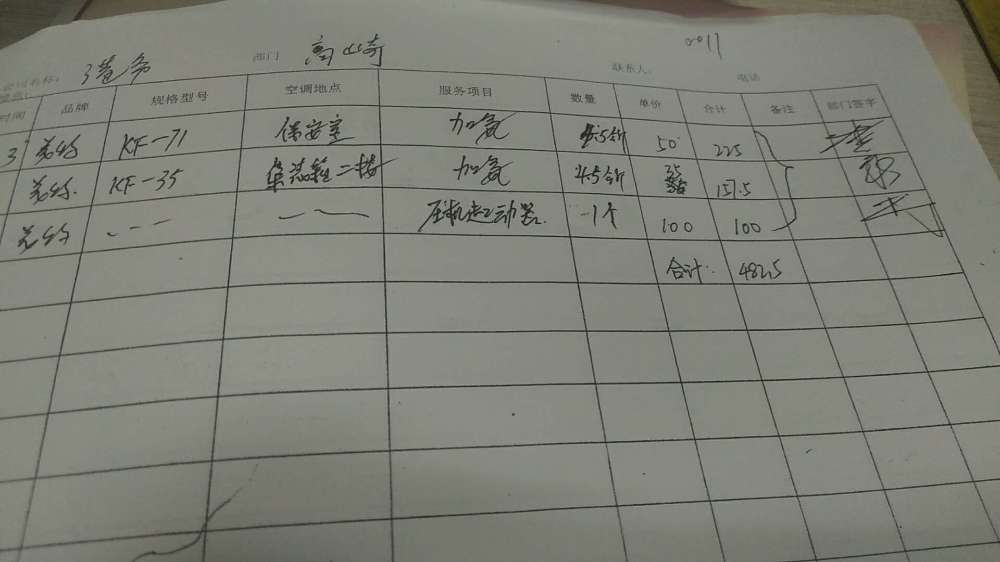 港务 部门 高崎 联系人: 电话
时间 品牌 规格型号 空调地点 服务项目 数量 单价 合计 备注 部门签字
3 美的 KF-71 保安室 加氟 4.5公斤 50 225
美的 KF-35 二楼 加氟 4.5公斤 35 157.5
美的 压机起动器 1个 100 100
合计: 482.5